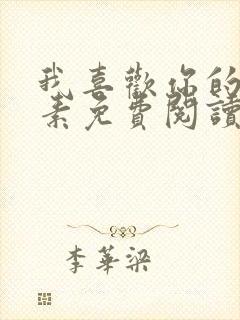 我喜歡你的
素免費閱讀
李華梁